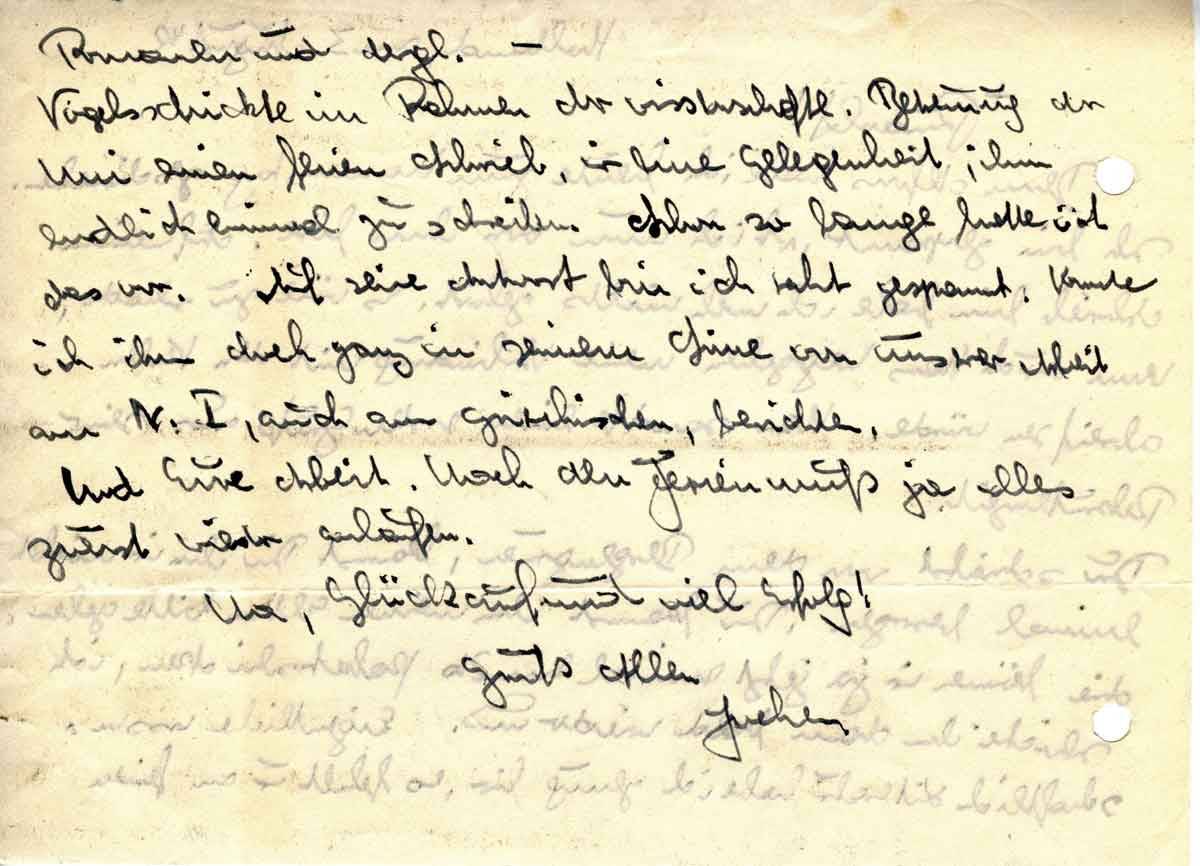 Romanen und dergl. –
Vogel schickte im Rahmen der wissenschaftl. Betreuung der
Uni einen Ferien Schrieb, ir eine Gelegenheit, ihm
endlich einmal zu schreiben. Schon so lange hatte ich
das vor. Auf seine Antwort bin ich recht gespannt. Konnte
ich ihm doch ganz in seinem Sinne von unsrer Arbeit
am N.T., auch am griechischen, berichten.
Und Eure Arbeit. Nach den Ferien muß ja alles
zuerst wieder anlaufen.
Na, Glückauf und viel Erfolg!
Gruß Allen
Jochen